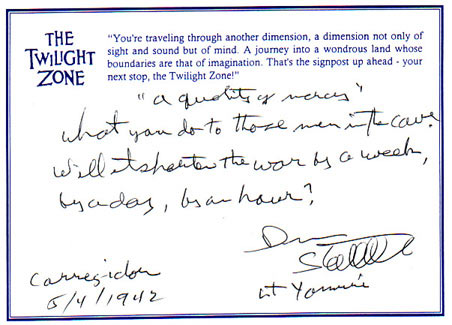 THE
TWILIGHT
ZONE
"You're traveling through another dimension, a dimension not only of
sight and sound but of mind. A journey into a wondrous land whose
boundaries are that of imagination. That's the signpost up ahead - your
next stop, the Twilight Zone!"
"a quality of mercy"
What you do to those men in the cave?
Will it shorten the war by a week,
by a day, by an hour?
Corregidor
5/4/1942
Lt Yamuri